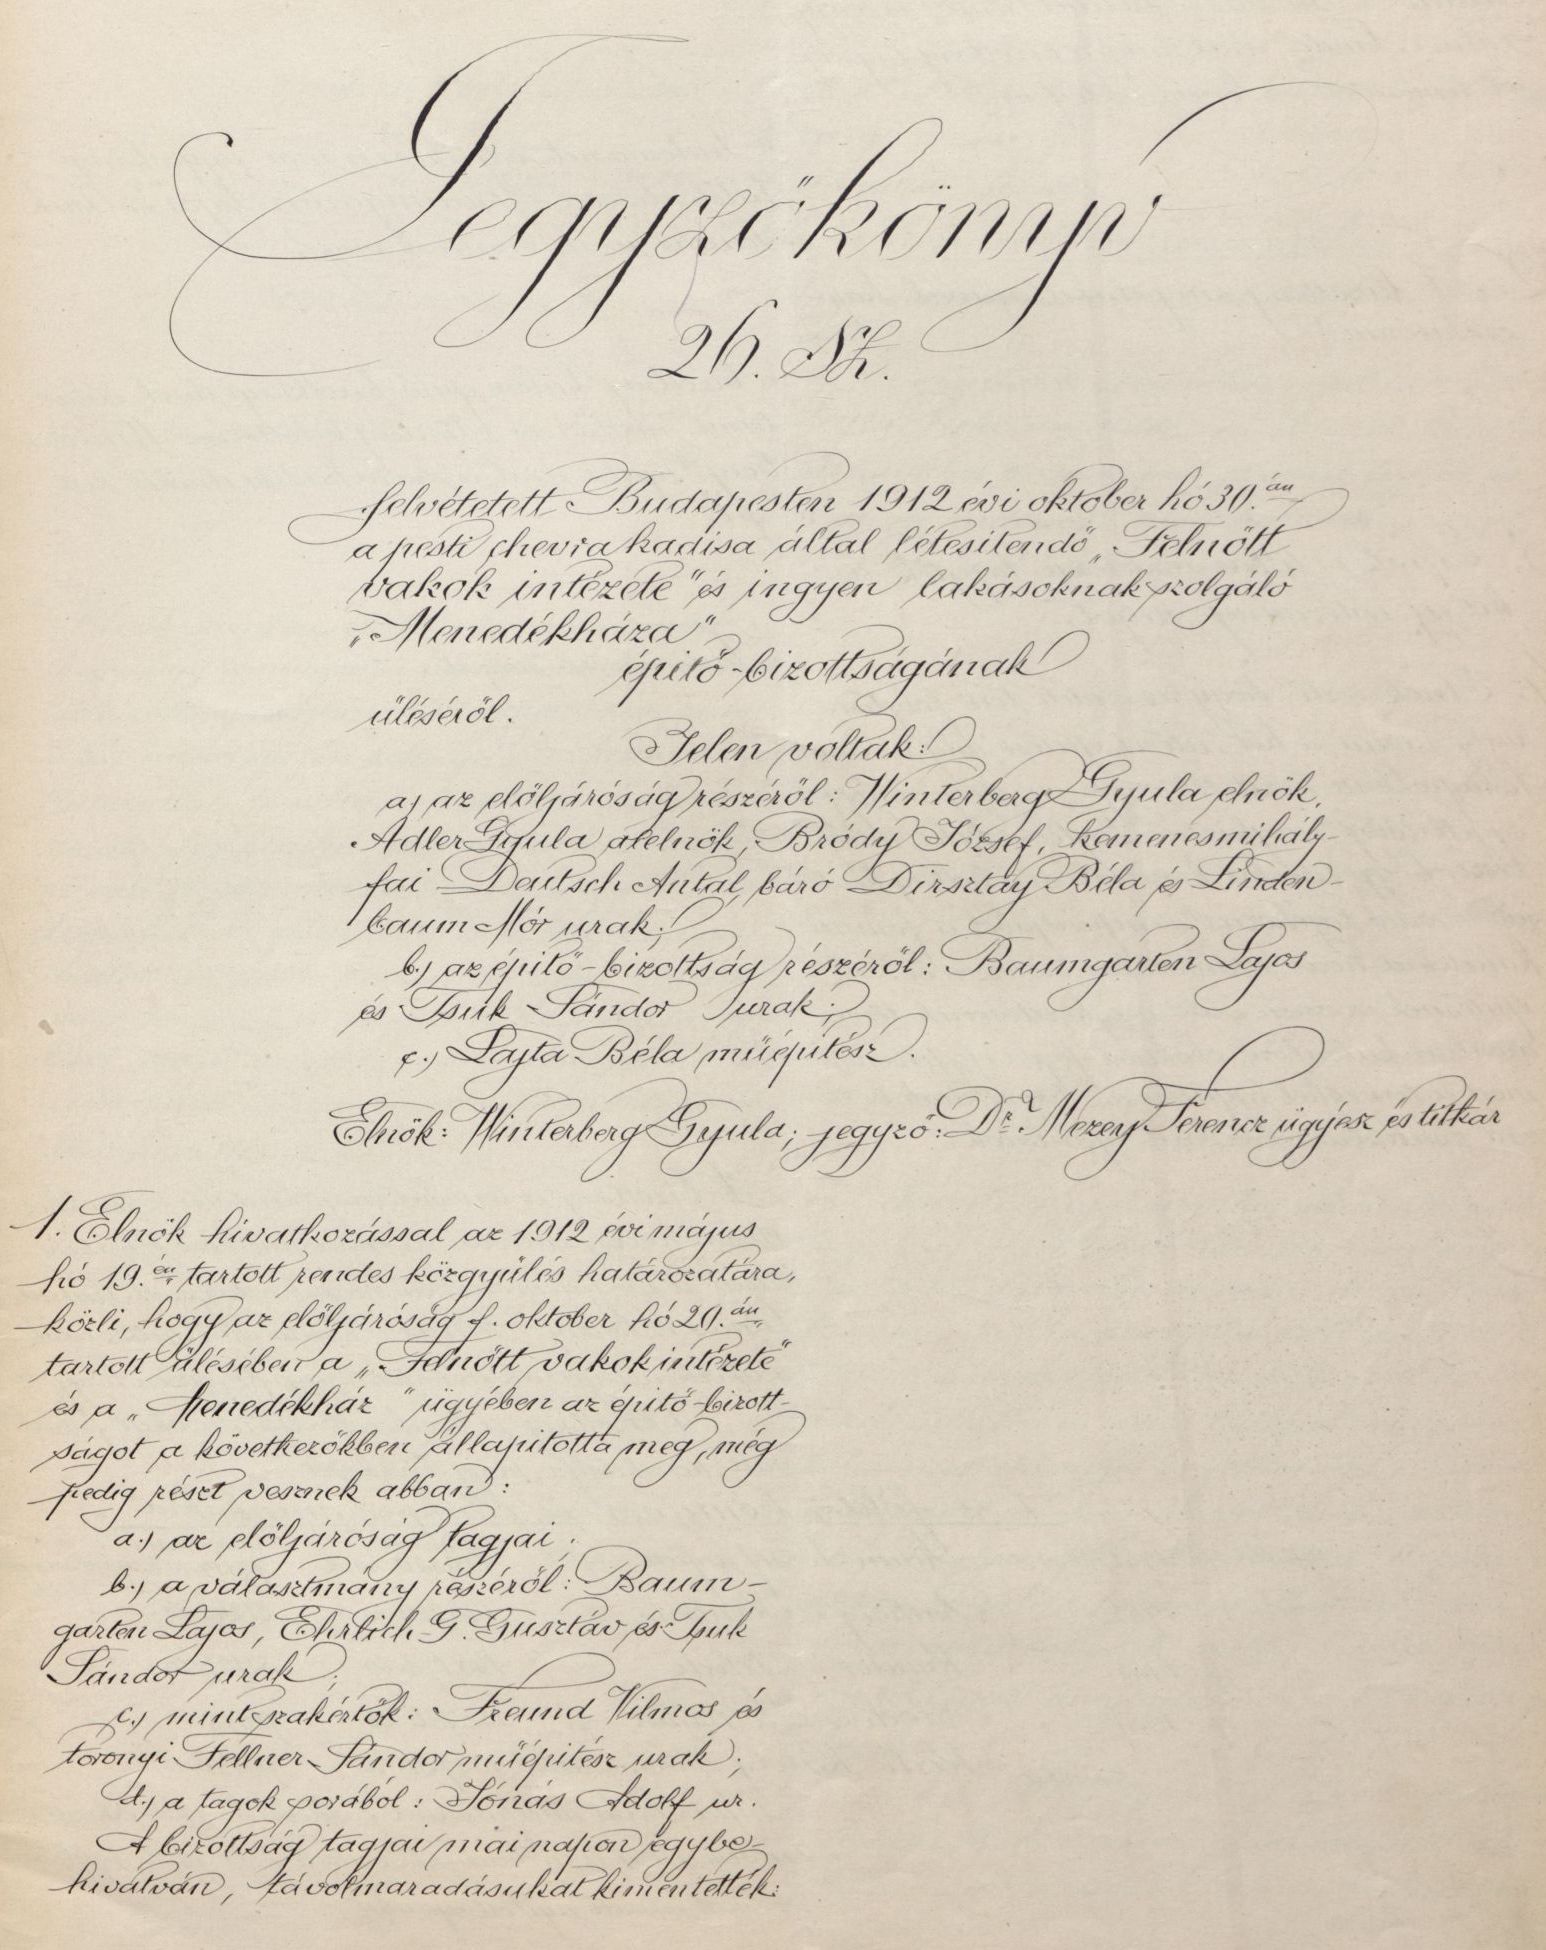 Jegyzőkönyv
26. Sz.
felvétetett Budapesten 1912 évi oktober hó 30.án
a pesti chevra kadisa által létesitendő „Felnőtt
vakok intézete" és ingyen lakásoknak szolgáló
„Menedékháza"
épitő-bizottságának
üléséről.
Jelen voltak:
a) az elöljáróság részéről: Winterberg Gyula elnök,
Adler Gyula alelnök, Bródy József, kemenesmihály-
fai Deutsch Antal, báró Dirsztay Béla és Linden-
baum Mór urak;
b.) az épitő-bizottság részéről: Baumgarten Lajos
és Tsuk Sándor urak;
c.) Lajta Béla műépitész.
Elnök: Winterberg Gyula; jegyző: Dr. Mezey Ferencz ügyész és titkár
1. Elnök hivatkozással az 1912 évi május
hó 19.én tartott rendes közgyülés határozatára,
közli, hogy az elöljáróság f. oktober hó 20.án
tartott ülésében a „Felnőtt vakok intézete"
és a „Menedékház" ügyében az épitő-bizott-
ságot a következőkben állapitotta meg, még
pedig részt vesznek abban:
a.) az elöljáróság tagjai;
b.) a választmány részéről: Baum-
garten Lajos, Ehrlich G. Gusztáv és Tsuk
Sándor urak;
c.) mint szakértők: Freund Vilmos és
toronyi Fellner Sándor műépitész urak;
d.) a tagok sorából: Jónás Adolf ur.
A bizottság tagjai mai napon egybe-
hivatván, távolmaradásukat kimentették: